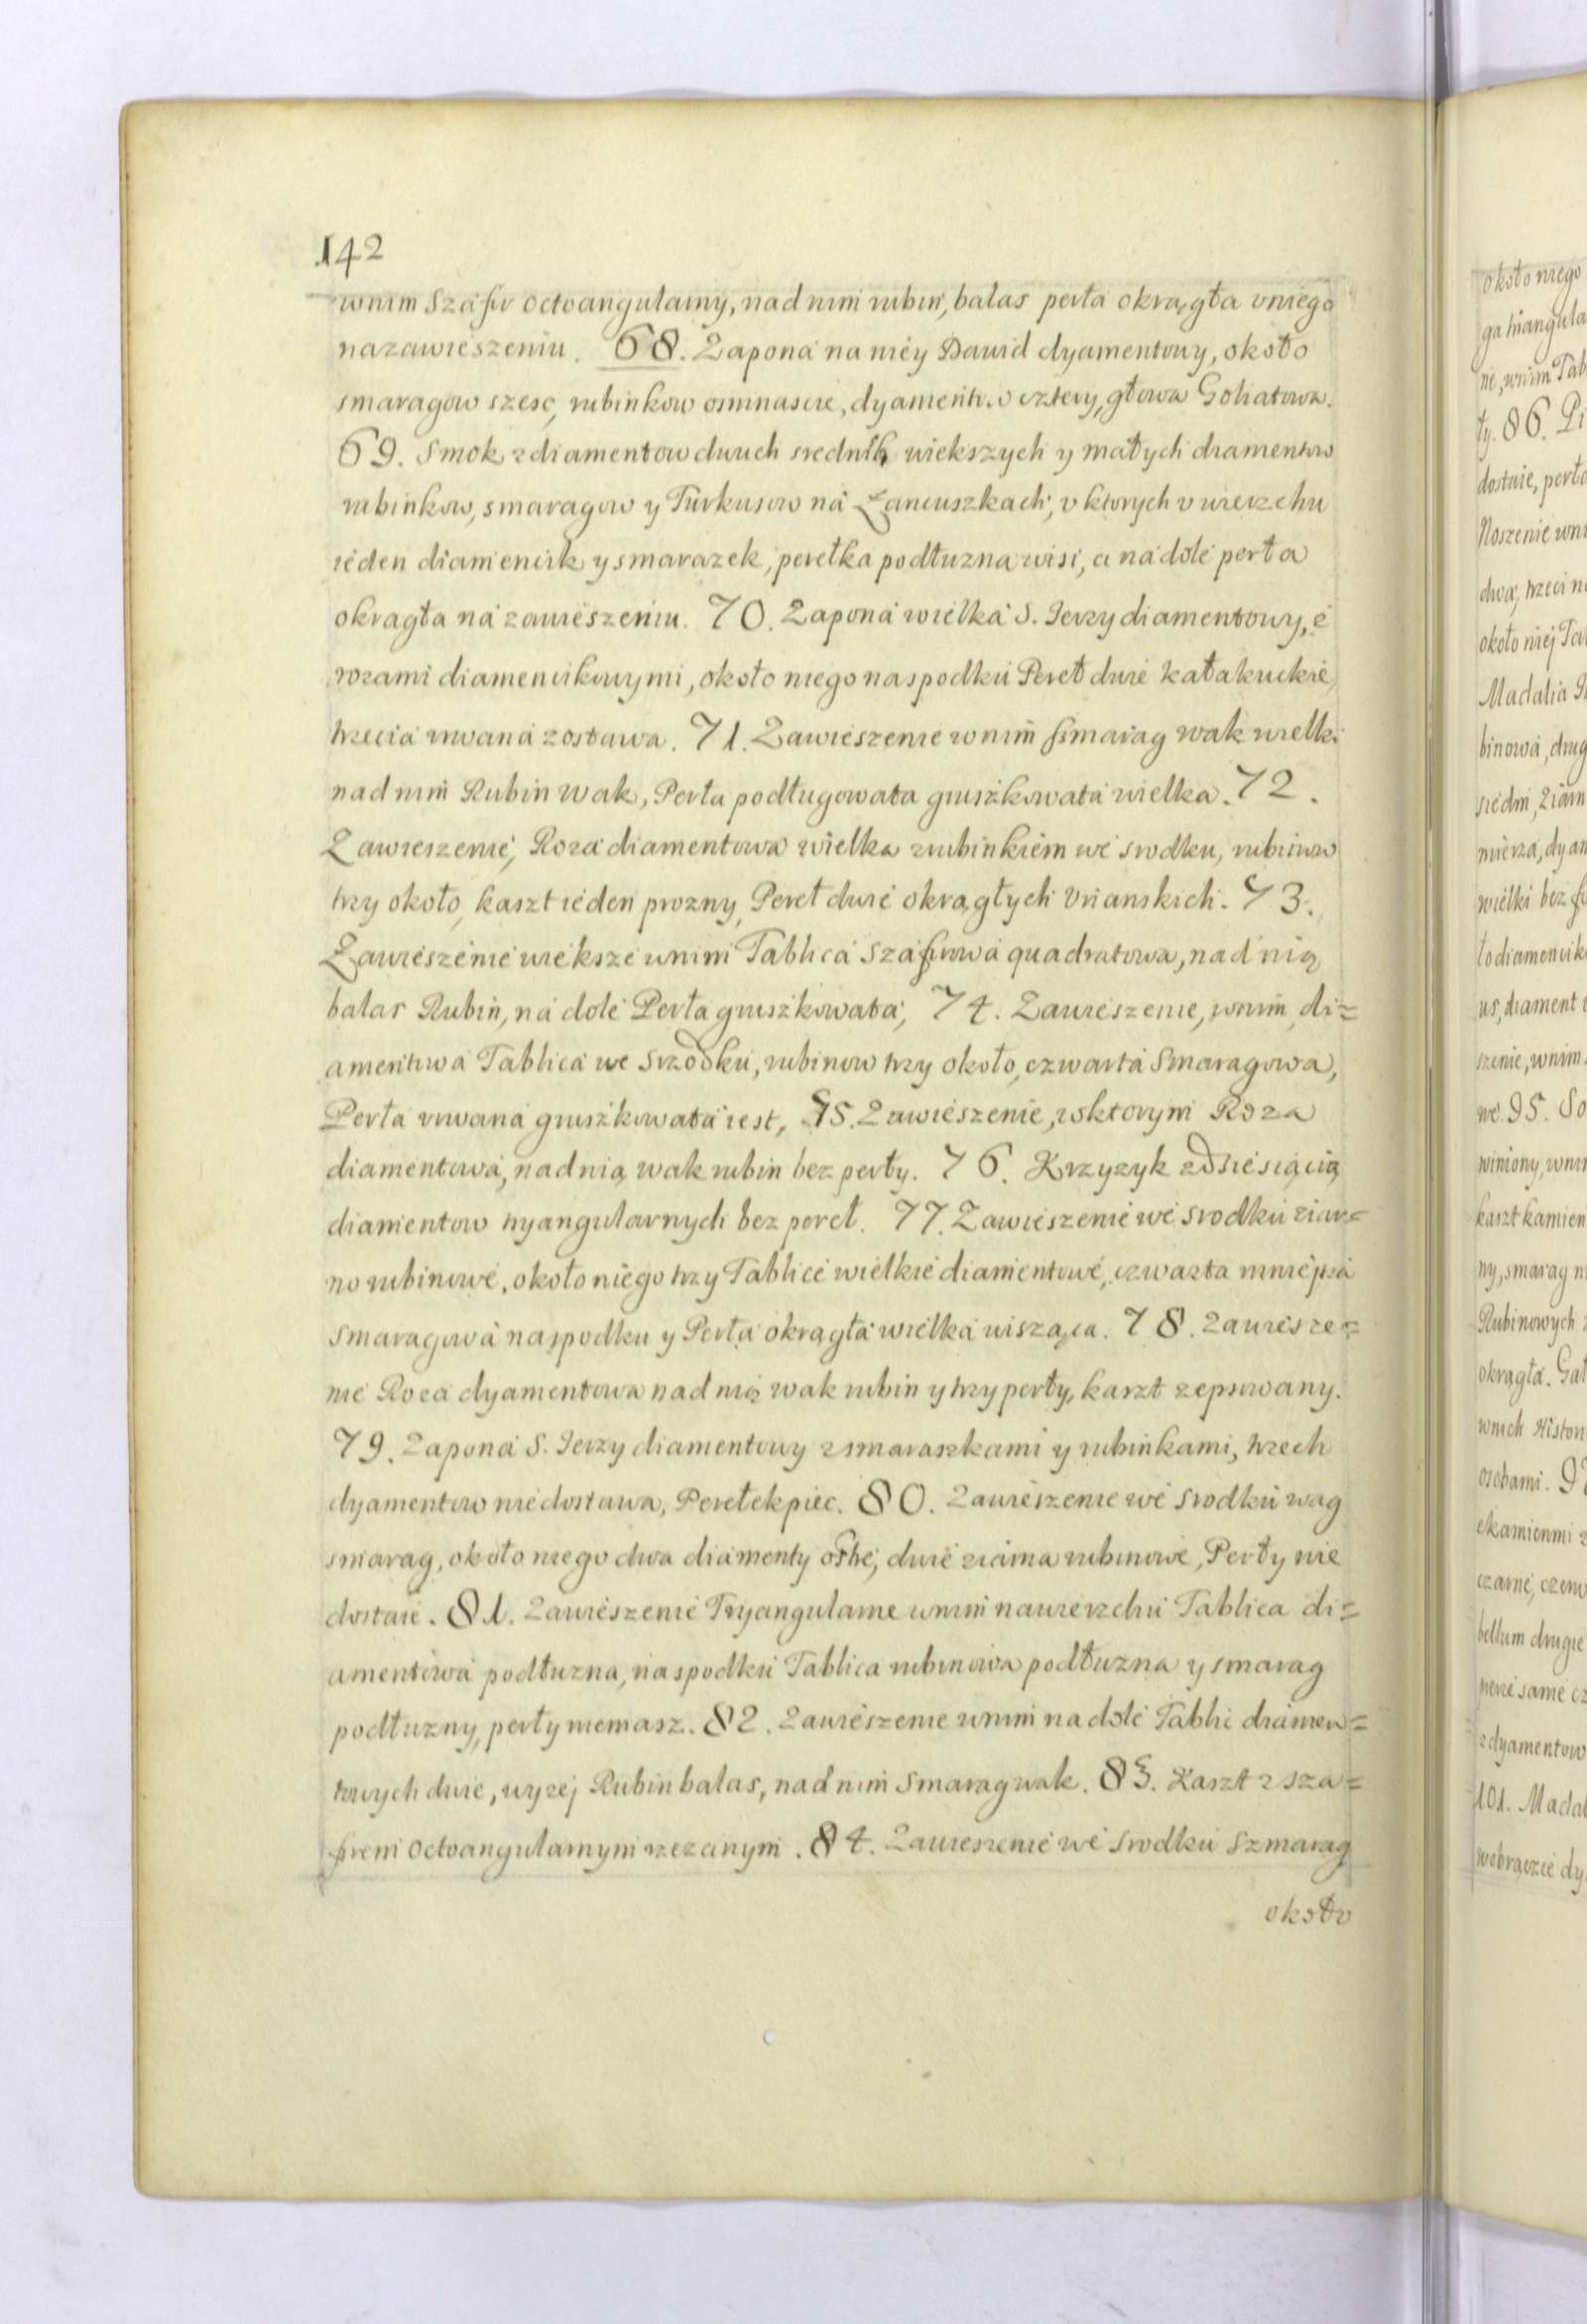 142
wnim Szafir octoangularny, nad nim rubin, balas perła okrągła vniego
nazawieszeniu. 68. Zapona na niey Dawid dyamentowy, około
smaragow szesc, rubinkow osmnascie, dyamentow cztery, głowa Goliatowa.
69. Smok z diamentow dwuch srednih wiekszych y małych diamentow
rubinkow, smaragow y Turkusow ná Łancuszkach, v ktorych v wierzchu
ieden diamencik y smarazek, perełka podłuzna wisi, a ná dole perła
okragła ná zawieszeniu. 70. Zapona wielka S. Jerzy diamentowy, z
rozami diamencikowymi, około niego naspodku Pereł dwie kałakuckie,
trzecia vrwana zostawa. 71. Zawieszenie wnim smarag wak wielki
nad nim Rubin wak, Perła podługowata gruszkowata wielka. 72.
Zawieszenie, Roza diamentowa wielka zrubinkiem we srodku, rubinow
trzy około, kaszt ieden prozny, Pereł dwie okrągłych Vrianskich. 73.
Zawieszenie wieksze wnim Tablica Szafirowa quadratowa, nad nią
balas Rubin, ná dole Perła gruszkowata, 74. Zawieszenie, wnim di=
amentowa Tablica we Srzodku, rubinow trzy około, czwarta Smaragowa,
Perła vrwana gruszkowata iest, 75. Zawieszenie, wktorym Roza
diamentowa, nad nią wak rubin bez perły. 76. Krzyzyk zdziesiącią
diamentow tryangularnych bez pereł. 77. Zawieszenie we srodku ziar=
no rubinowe, około niego trzy Tablice wielkie diamentowe, czwarta mnieysza
smaragowa naspodku y Perła okragła wielka wisząca. 78. Zawiesze=
nie Roza dyamentowa nad nią wak rubin y trzy perły, kaszt zepsowany.
79. Zapona S. Jerzy diamentowy z smaraszkami y rubinkami, trzech
dyamentow niedostawa, Perełek piec. 80. Zawieszenie we srodku wag
smarag, około niego dwa diamenty ostre, dwie ziarna rubinowe, Perły nie
dostaie. 81. Zawieszenie Tryangularne wnim nawierzchu Tablica di=
amentowa podłuzna, naspodku Tablica rubinowa podłuzna y smarag
podłuzny, perły niemasz. 82. Zawieszenie wnim na dole Tablic diamen=
towych dwie, wyzej Rubin balas, nad nim Smarag wak. 83. Kaszt z sza=
firem octoangularnym rzezanym. 84. Zawieszenie we srodku Szmarag
około